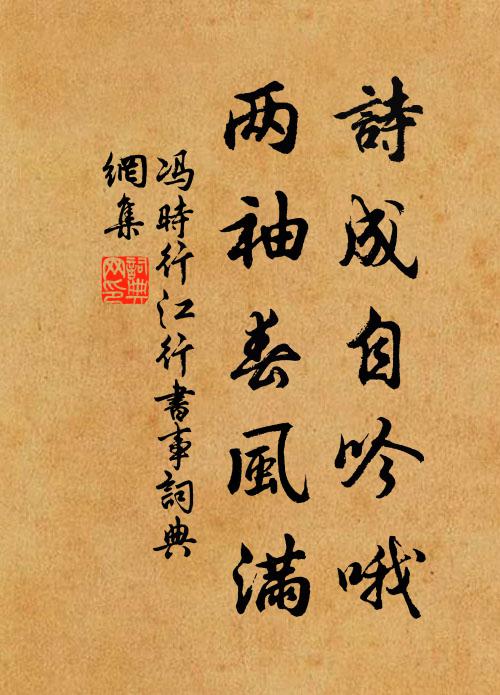 詩成自吟哦
两袖春風满
冯時行江行書事詞典
網集
詞典网印